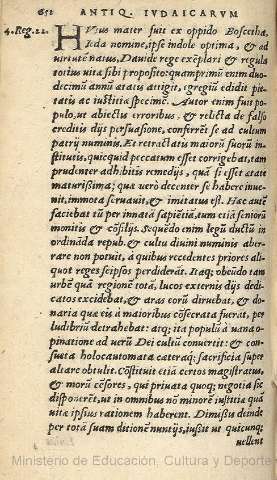 652 ANTIQ. IVDAICARVM
4. Reg. 22. HVius mater fuit ex oppido Boscetha,
Ieda nomine, ipse indole optima, & ad
virtutē natus, Dauide rege exēplari & regula
totius uitæ sibi proposito: quamprimū enim duo
decimū annū ætatis attigit, egregiū edidit pie-
tatis ac iustitiæ specimē. Autor enim fuit po-
pulo, ut abiectis erroribus, & relicta de falso
creditis dijs persuasione, conferrēt se ad cultum
patrij numinis. Et retractatis maiorū suorū in-
stitutis, quicquid peccatum esset corrigebat, tam
prudenter adhibitis remedijs, quā si esset ætate
maturissima; quæ uerò decenter se habere inue-
nit, immota seruauit, & imitatus est. Hæc autē
faciebat tū per innatā sapiētiā, tum etiā seniorū
monitis & cōsilijs. Sequēdo enim legū ductū in
ordināda repub. & cultu diuini numinis aber-
rare non potuit, à quibus recedentes priores ali-
quot reges seipsos perdiderāt. Itaq; obeūdo tam
urbē quā regionē totā, lucos externis dijs dedi-
catos excidebat, & aras eorū diruebat, & do-
naria quæ eis à maioribus cōsecrata fuerāt, per
ludibriū detrahebat: atq; ita populū à uana o-
pinatione ad ueri Dei cultū conuertit: & con-
sueta holocautomata cæteraq; sacrificia super
altare obtulit. Cōstituit etiā certos magistratus,
& morū cēsores, qui priuata quoq; negotia sic
disponerēt, ut in omnibus nō minorē iustitiæ quā
uitæ ipsius rationem haberent. Dimissis deinde
per totā suam ditionē nuntijs, iussit ut quicunq;
uellent
Ministerio de Educación, Cultura y Deporte